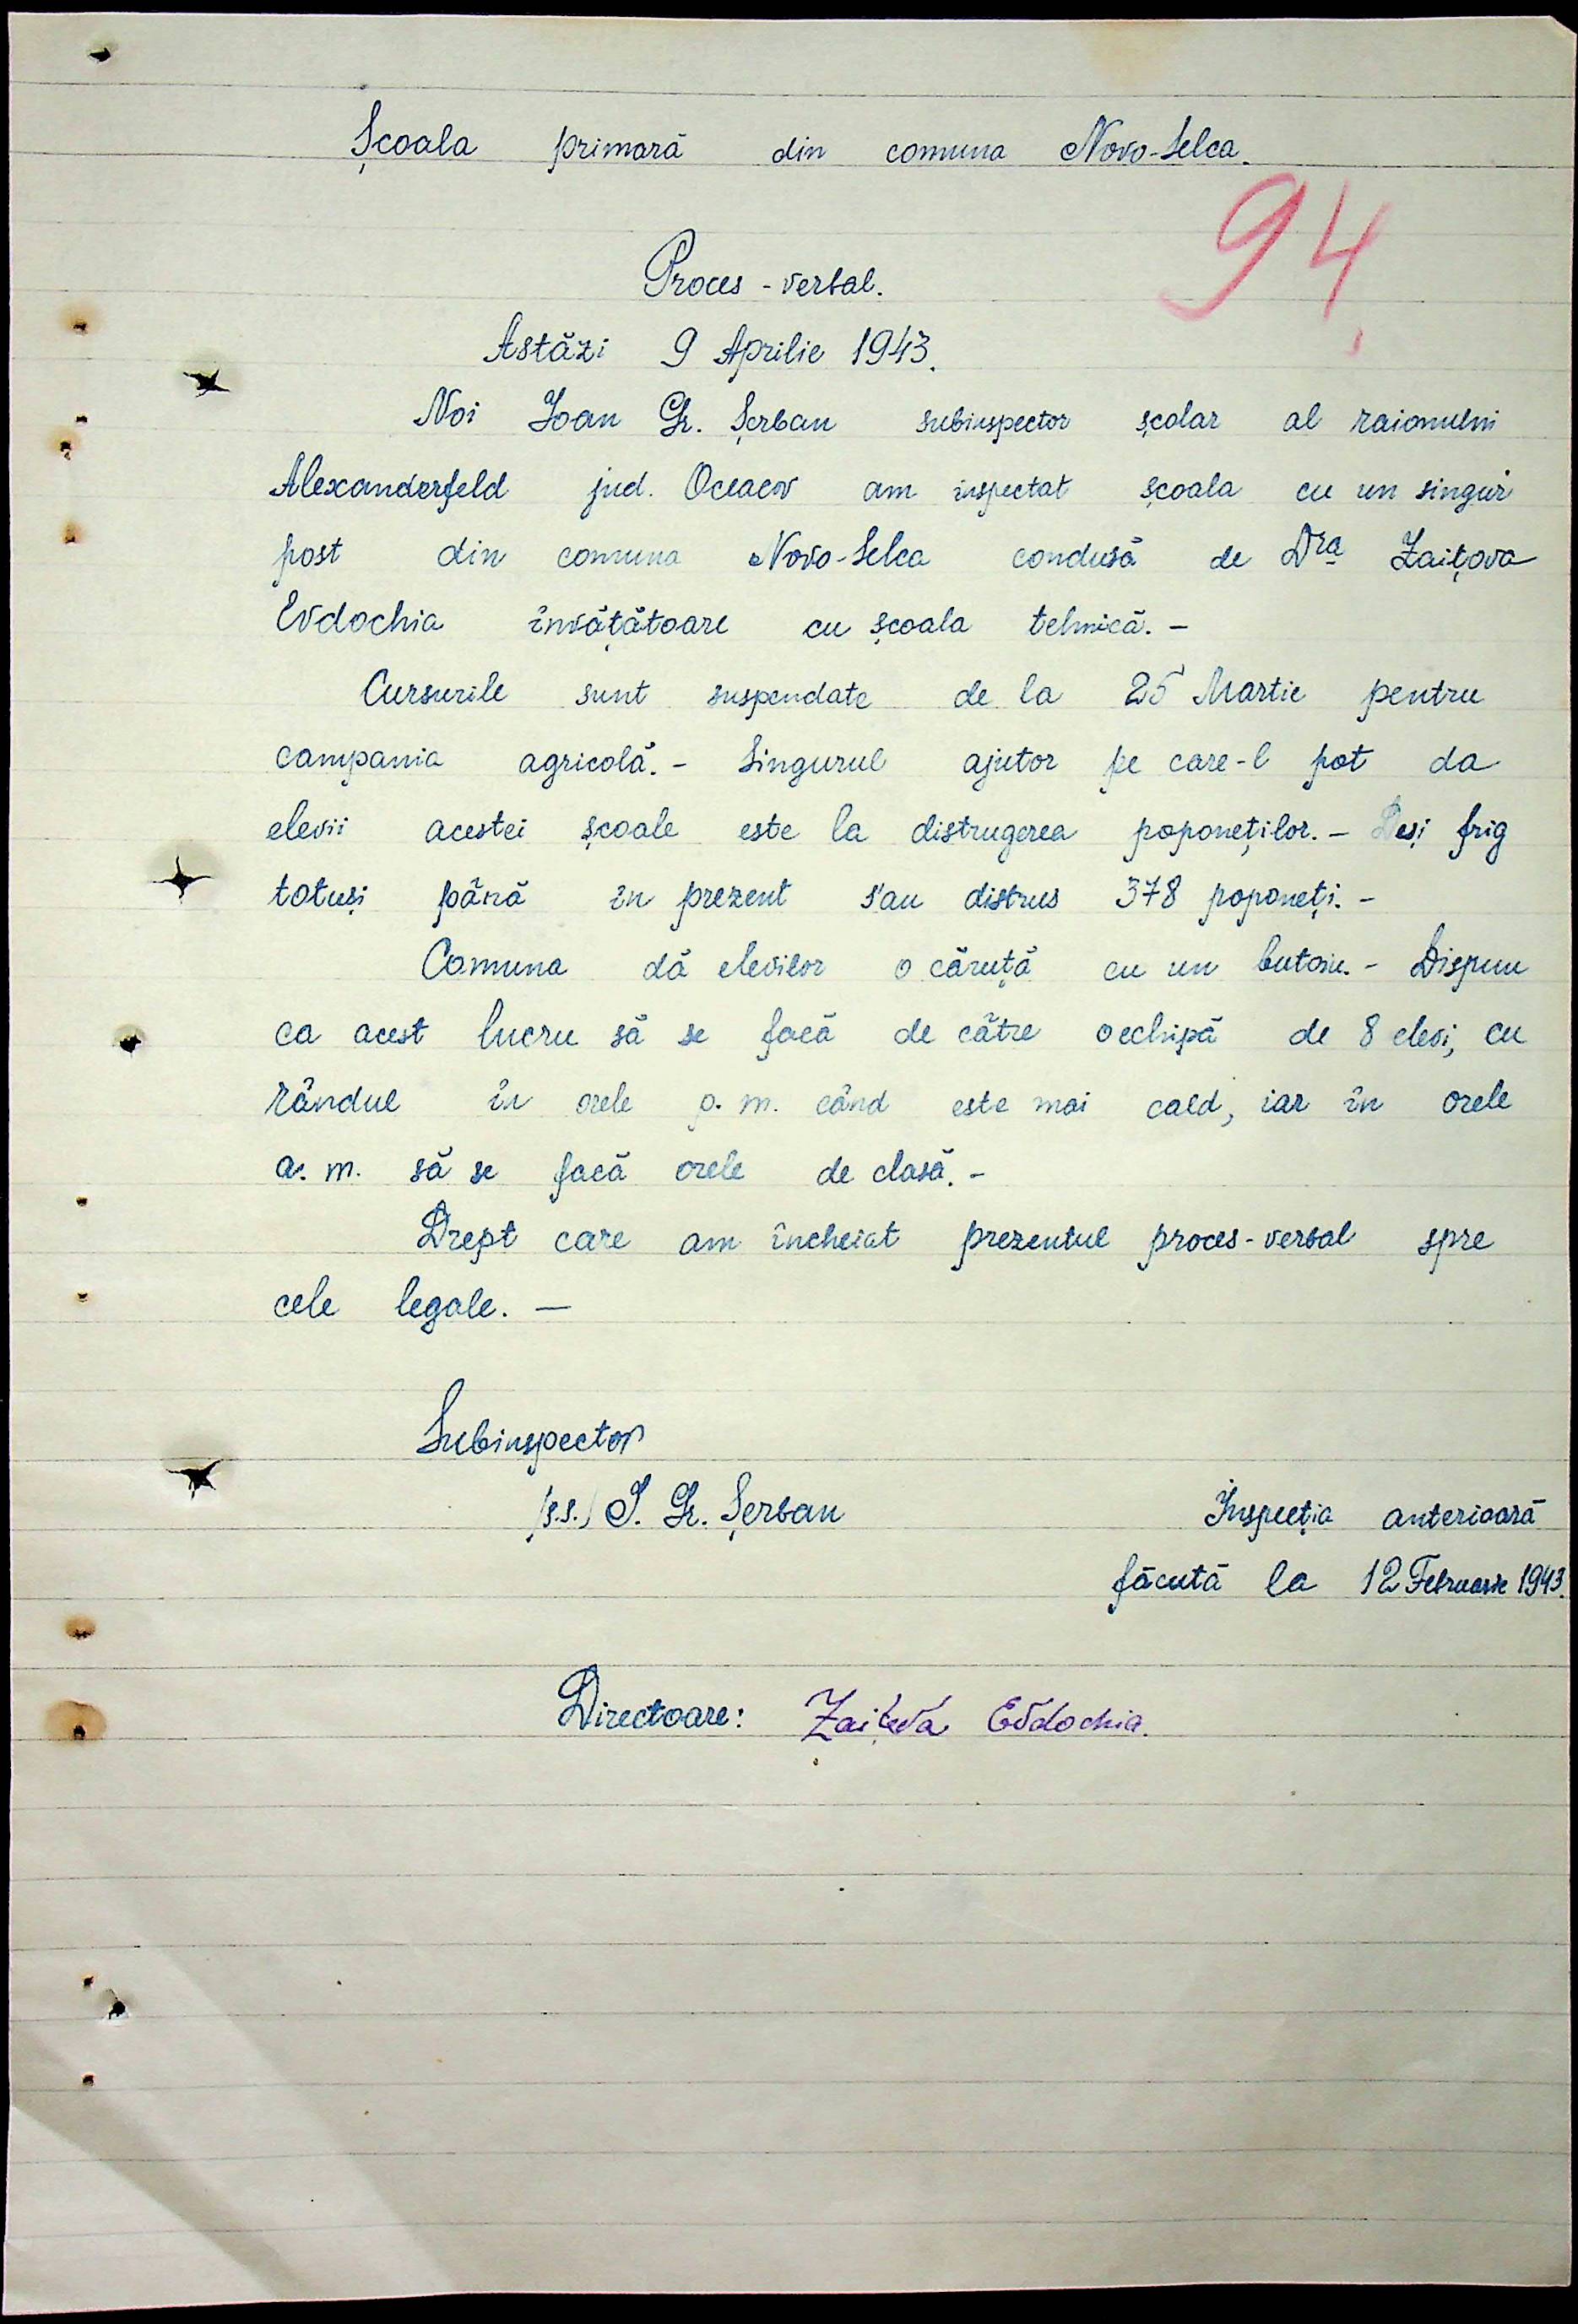 Școala primară din comuna Novo-Selca.
94
Proces-verbal.
Astăzi 9 Aprilie 1943.
Noi Ioan Gr. Șerban subinspector școlar al raionului
Alexanderfeld jud. Oceacov am inspectat școala cu un singur
post din comuna Novo-Selca condusă de Dra Zaițova
Evdochia învățătoare cu școala tehnică. -
Cursurile sunt suspendate de la 25 Martie pentru
campania agricolă. - Singurul ajutor pe care-l pot da
elevii acestei școale este la distrugerea poponeților. - Deși frig
totuși până în prezent s'au distrus 378 poponeți. -
Comuna dă elevilor o căruță cu un butoiu. - Dispun
ca acest lucru să se facă de către o echipă de 8 elevi, cu
rândul în orele p. m. când este mai cald, iar în orele
a. m. să se facă orele de clasă. -
Drept care am încheiat prezentul proces-verbal spre
cele legale. —
Subinspector
(s.s.) I. Gr. Șerban
Inspecția anterioară
făcută la 12 Februarie 1943.
Directoare: Zaițeva Evdochia.